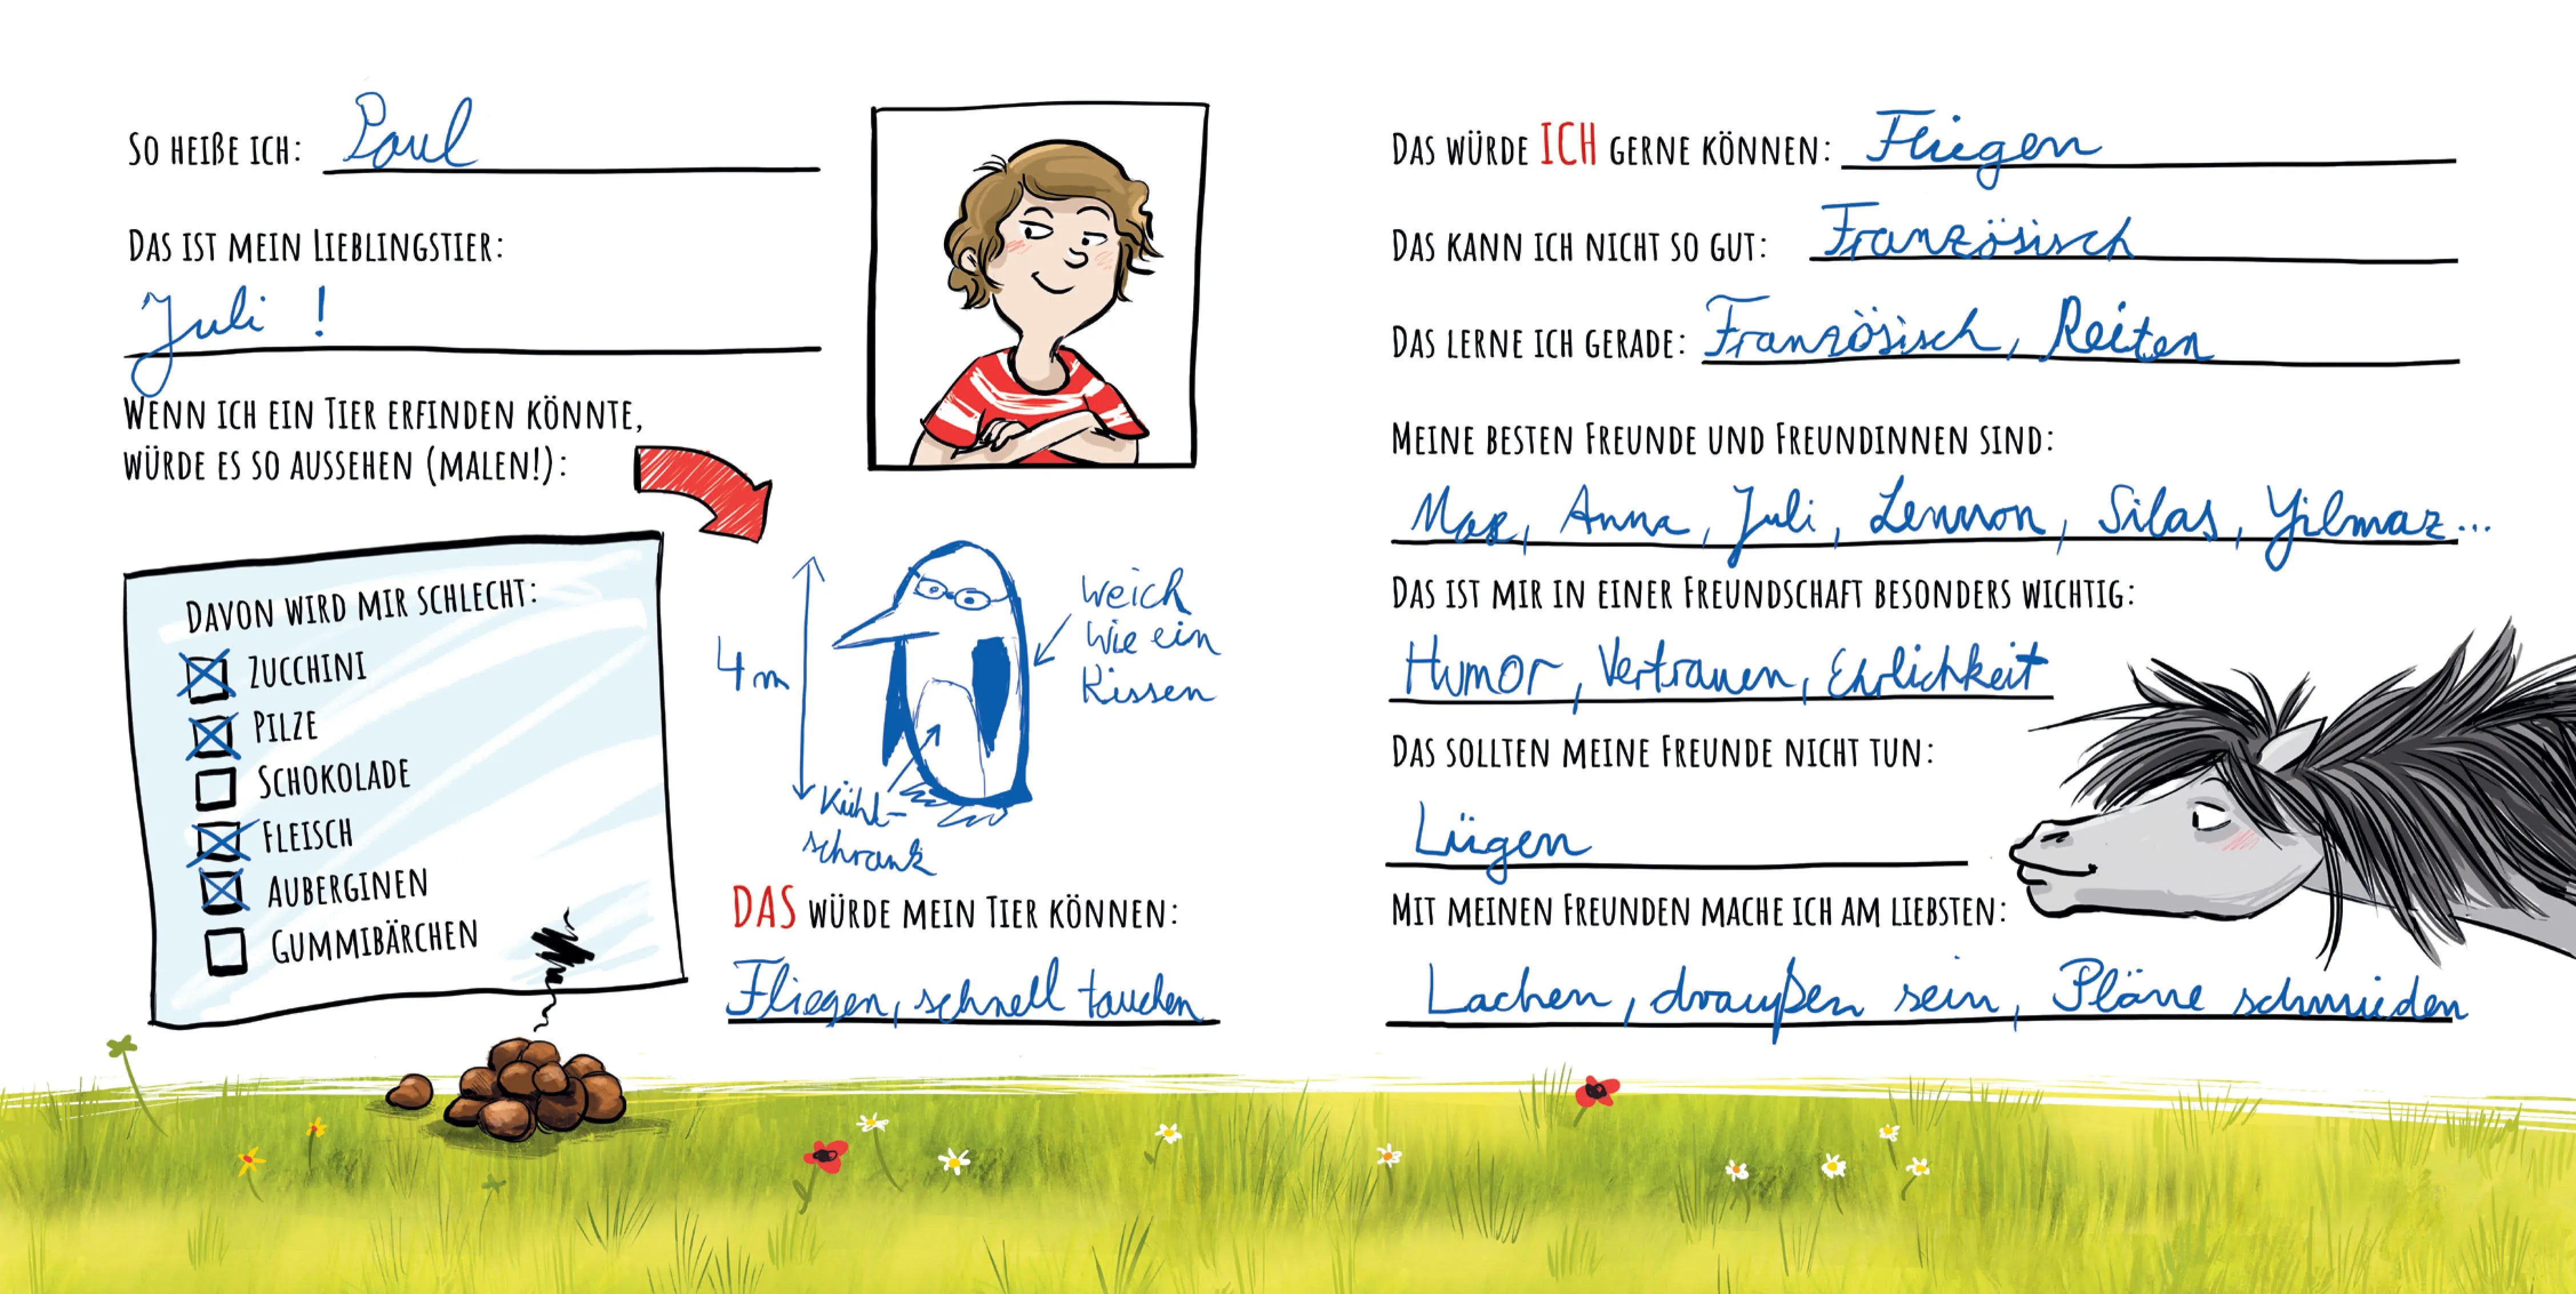 So heiße ich: Paul
Das ist mein Lieblingstier:
Juli !
Wenn ich ein Tier erfinden könnte,
würde es so aussehen (malen!):
Davon wird mir schlecht:
Zucchini
Pilze
Schokolade
Fleisch
Auberginen
Gummibärchen
4m
weich
wie ein
Kissen
Kühl-
schrank
DAS würde mein Tier können:
Fliegen, schnell tauchen
Das würde ICH gerne können: Fliegen
Das kann ich nicht so gut: Französisch
Das lerne ich gerade: Französisch, Reiten
Meine besten Freunde und Freundinnen sind:
Max, Anna, Juli, Lennon, Silas, Yilmaz...
Das ist mir in einer Freundschaft besonders wichtig:
Humor, Vertrauen, Ehrlichkeit
Das sollten meine Freunde nicht tun:
Lügen
Mit meinen Freunden mache ich am liebsten:
Lachen, draußen sein, Pläne schmieden